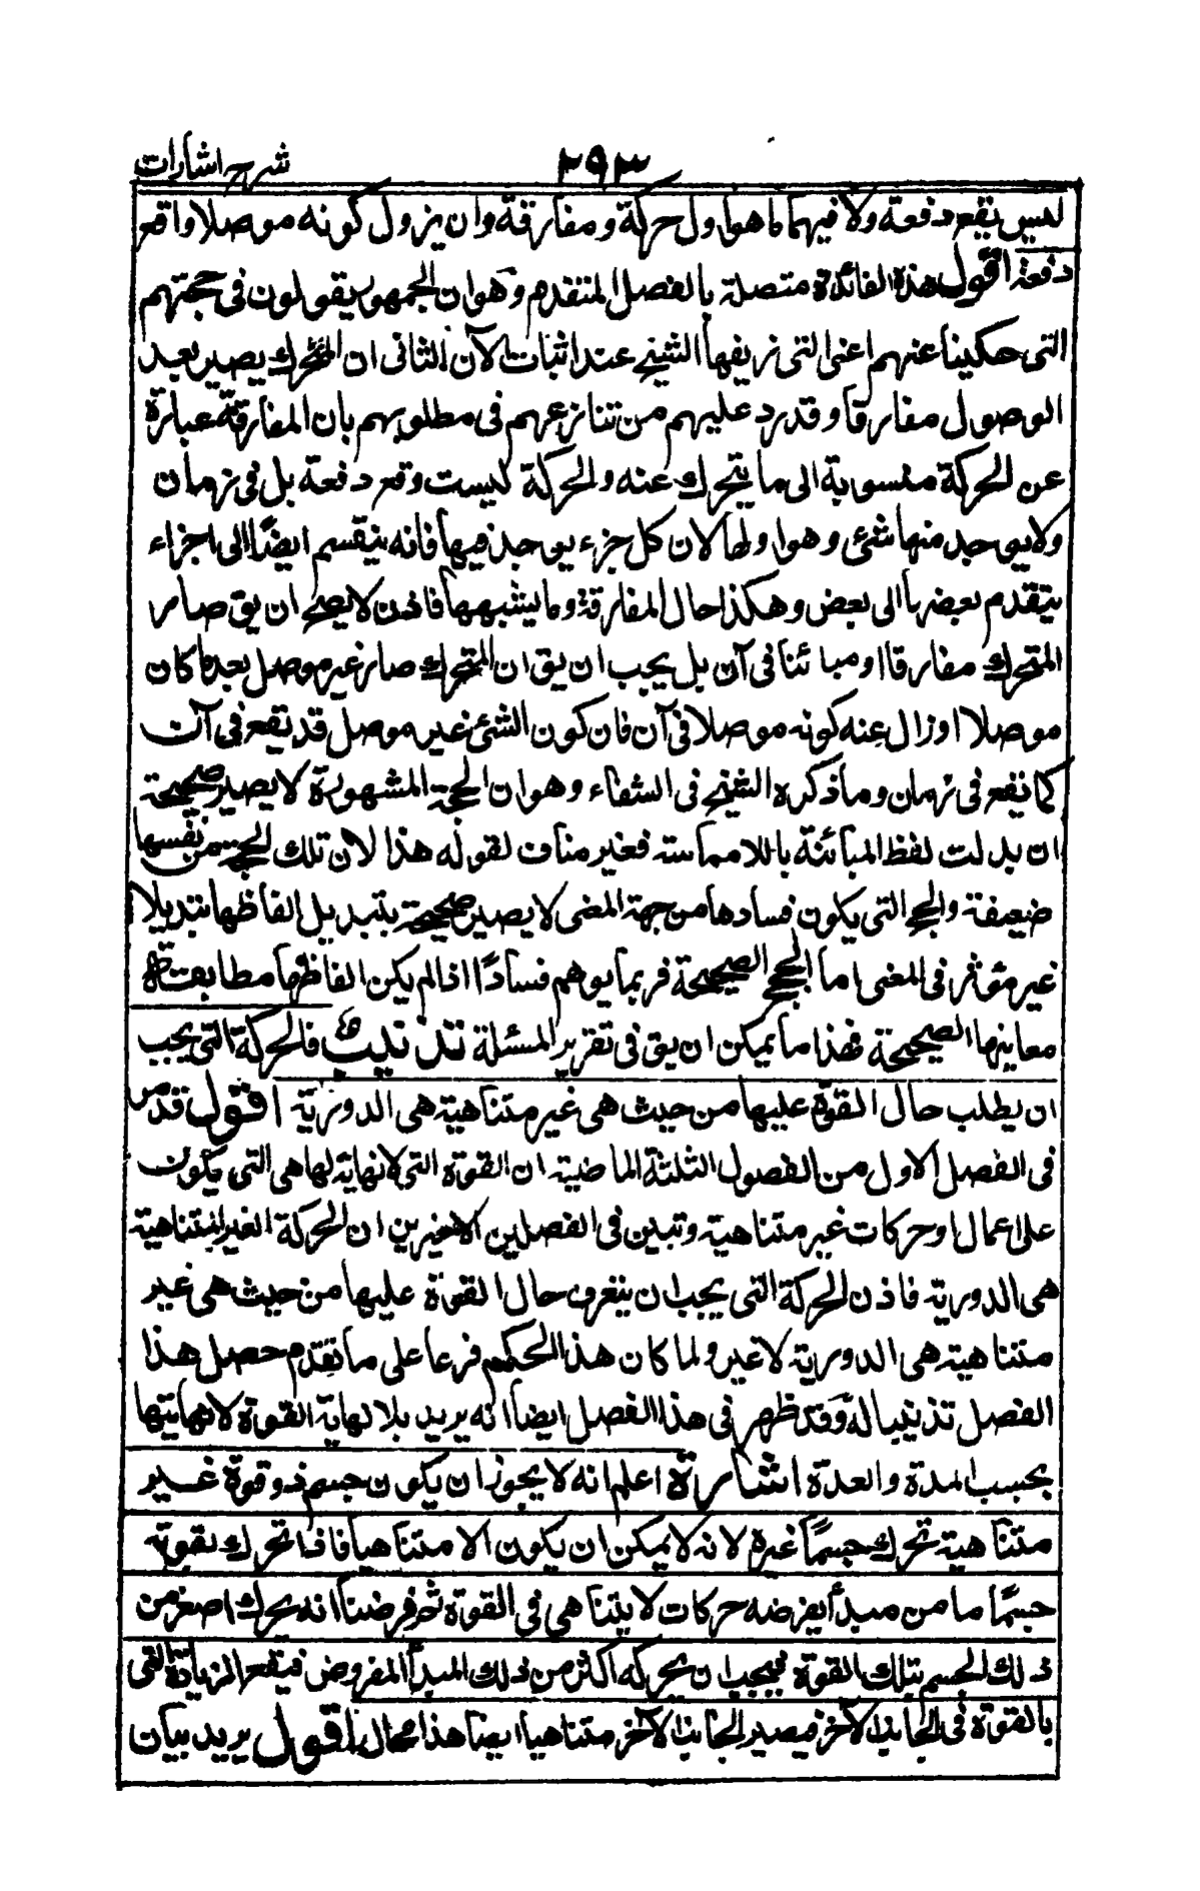 شرح اشارات ٢٩٣
ليس يقع دفعة ولا فيهما ما هو اول حركة ومفارقة وان يزول كونه موصلا واقع
دفعة اقول هذه الفائدة متصلة بالفصل المتقدم وهو ان الجمهور يقولون فى حجتهم
التى حكيناعنهم اعنى التى زيفها الشيخ عند اثبات الآن الثانى ان المتحرك يصير بعد
الوصول مفارقا وقد رد عليهم من تنازعهم فى مطلوبهم بان المفارقة عبارة
عن الحركة منسوبة الى ما يتحرك عنه والحركة ليست وقع دفعة بل فى زمان
ولا يوجد منها شئ وهو اولها لان كل جزء يوجد فيها فانه ينقسم ايضًا الى اجزاء
يتقدم بعضها الى بعض وهكذا حال المفارقة وما يشبهها فاذن لا يصح ان يق صار
المتحرك مفارقا او مبائنا فى آن بل يجب ان يق ان المتحرك صار غير موصل بعد ما كان
موصلا او زال عنه كونه موصلا فى آن فان كون الشئ غير موصل قد يقع فى آن
كما يقع فى زمان وما ذكره الشيخ فى الشفاء وهو ان الحجة المشهورة لا يصير صحيحة
ان بدلت لفظ المبائنة باللامماسة فغير مناف لقوله هذا لان تلك الحجة من نفسها
ضعيفة والحجج التى يكون فسادها من جهة المعنى لا يصير صحيحة بتبديل الفاظها تبديلا
غير مؤثر فى المعنى اما الحجج الصحيحة فربما يوهم فسادًا اذا لم يكن الفاظها مطابقة
معانيها الصحيحة فهذا ما يمكن ان يق فى تقرير المسئلة تذنيب فالحركة التى يجب
ان يطلب حال القوة عليها من حيث هى غير متناهية هى الدورية اقول قد مر
فى الفصل الاول من الفصول الثلثة الماضية ان القوة التى لانهاية لها هى التى يكون
على اعمال او حركات غير متناهية وتبين فى الفصلين الاخيرين ان الحركة الغير المتناهية
هى الدورية فاذن الحركة التى يجب ان يتعرف حال القوة عليها من حيث هى غير
متناهية هى الدورية لا غير ولما كان هذا الحكم فرعا على ما تقدم حصل هذا
الفصل تذنيبا له وقد ظهر فى هذا الفصل ايضًا انه يريد بلا نهاية القوة لانهايتها
بحسب المدة والعدة اشارة اعلم انه لا يجوز ان يكون جسم ذو قوة غير
متناهية تحرك جسمًا غيره لانه لا يمكن ان يكون الا متناهيا فاذا تحرك بقوته
جسمًا ما من مبدأ يفرضه حركات لا يتناهى فى القوة ثم فرضنا انه يحرك اصغر من
ذلك الجسم بتلك القوة فيجب ان يحركه اكثر من ذلك المبدأ المفروض فيقع الزيادة التى
بالقوة فى الجانب الآخر فيصير الجانب الآخر متناهيا ايضا هذا محال اقول يريد بيان